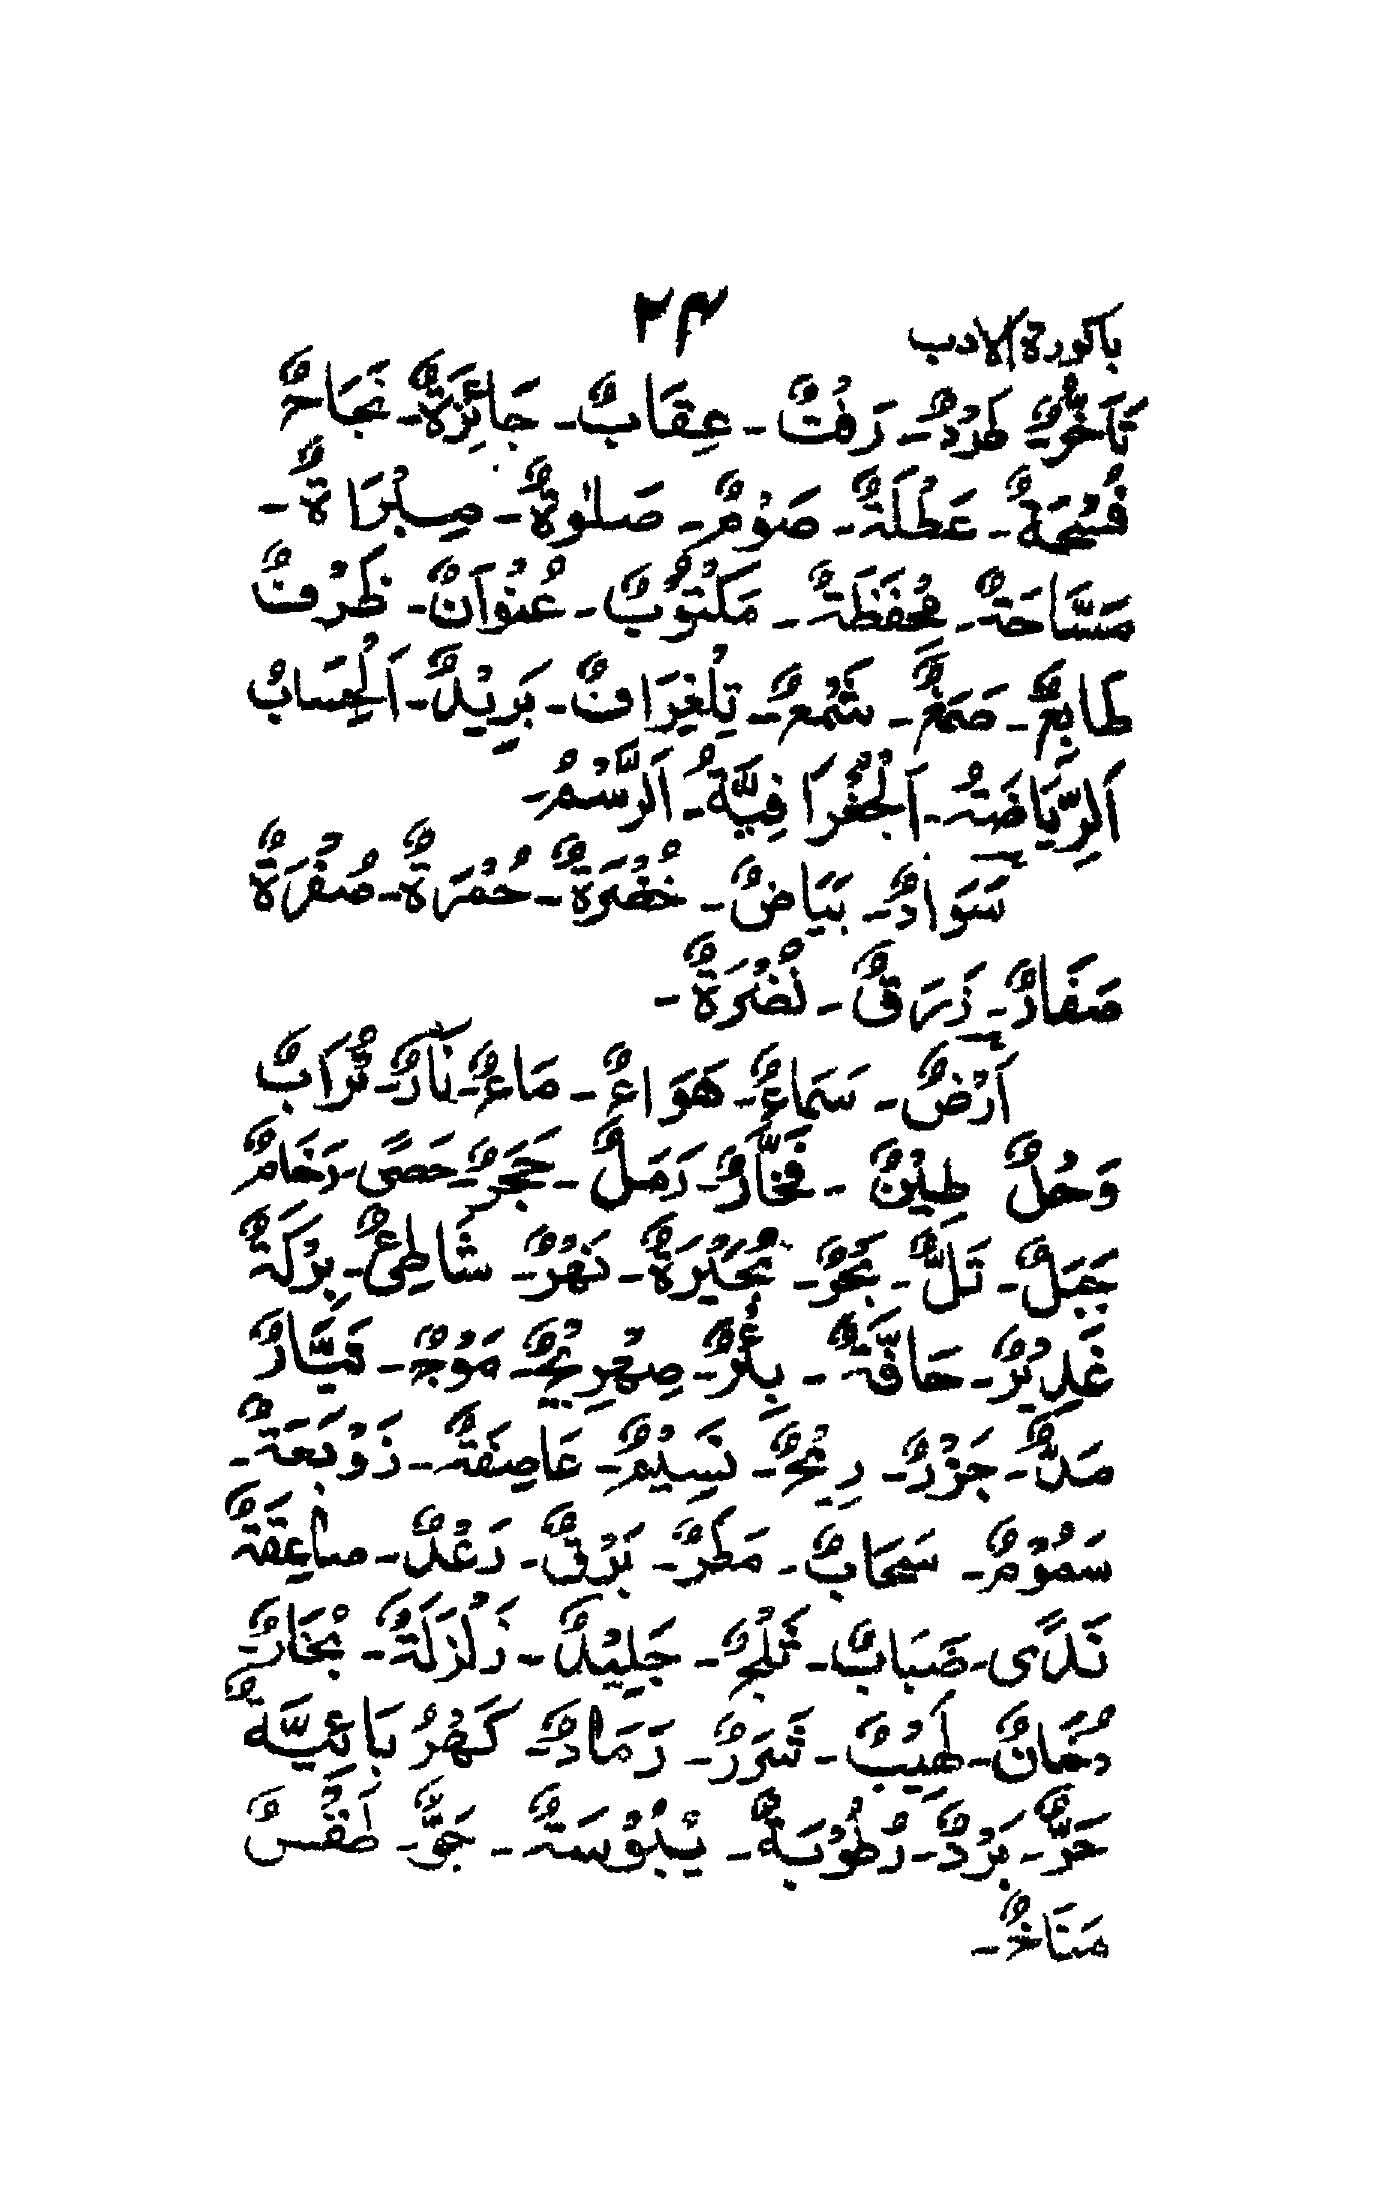 باکورة الادب
۲۴
تَأَخُّرٌ طَرْدٌ۔ رَفْتٌ۔ عِقَابٌ۔ جَائِزَةٌ۔ نَجَاحٌ
فُسْحَةٌ۔ عَطْلَةٌ۔ صَوْمٌ۔ صَلٰوةٌ۔ مِبْرَاةٌ۔
مَسَّاحَةٌ۔ مِحْفَظَةٌ۔ مَكْتُوْبٌ۔ عُنْوَانٌ۔ ظَرْفٌ
طَابِعٌ۔ صَمْغٌ۔ شَمْعٌ۔ تِلْغِرَافٌ۔ بَرِيْدٌ۔ اَلْحِسَابُ
اَلرِّيَاضَةُ۔ اَلْجُغْرَافِيَّةُ۔ اَلرَّسْمُ۔
سَوَادٌ۔ بَيَاضٌ۔ خُضْرَةٌ۔ حُمْرَةٌ۔ صُفْرَةٌ
صَفَارٌ۔ زَرَقٌ۔ نُضْرَةٌ۔
اَرْضٌ۔ سَمَاءٌ۔ هَوَاءٌ۔ مَاءٌ۔ نَارٌ۔ تُرَابٌ
وَحْلٌ طِيْنٌ ۔ فَخَّارٌ۔ رَمَلٌ۔ حَجَرٌ۔ حَصًى۔ رَخَامٌ
جَبَلٌ۔ تَلٌّ۔ بَحْرٌ۔ بُحَيْرَةٌ۔ نَهْرٌ۔ شَاطِئٌ۔ بِرْكَةٌ
غَدِيْرٌ۔ حَافَّةٌ۔ بِئْرٌ۔ صِهْرِيْجٌ۔ مَوْجٌ۔ تَيَّارٌ
مَدٌّ۔ جَزْرٌ۔ رِيْحٌ۔ نَسِيْمٌ۔ عَاصِفَةٌ۔ زَوْبَعَةٌ۔
سَمُوْمٌ۔ سَحَابٌ۔ مَطَرٌ۔ بَرْقٌ۔ رَعْدٌ۔ صَاعِقَةٌ
نَدًى۔ ضَبَابٌ۔ ثَلْجٌ۔ جَلِيْدٌ۔ زَلْزَلَةٌ۔ بُخَارٌ۔
دُخَانٌ۔ لَهِيْبٌ۔ شَرَرٌ۔ رَمَادٌ۔ كَهْرُبَائِيَّةٌ
حَرٌّ۔ بَرْدٌ۔ رُطُوْبَةٌ۔ يُبُوْسَةٌ۔ جَوٌّ۔ طَقْسٌ
مَنَاخٌ۔